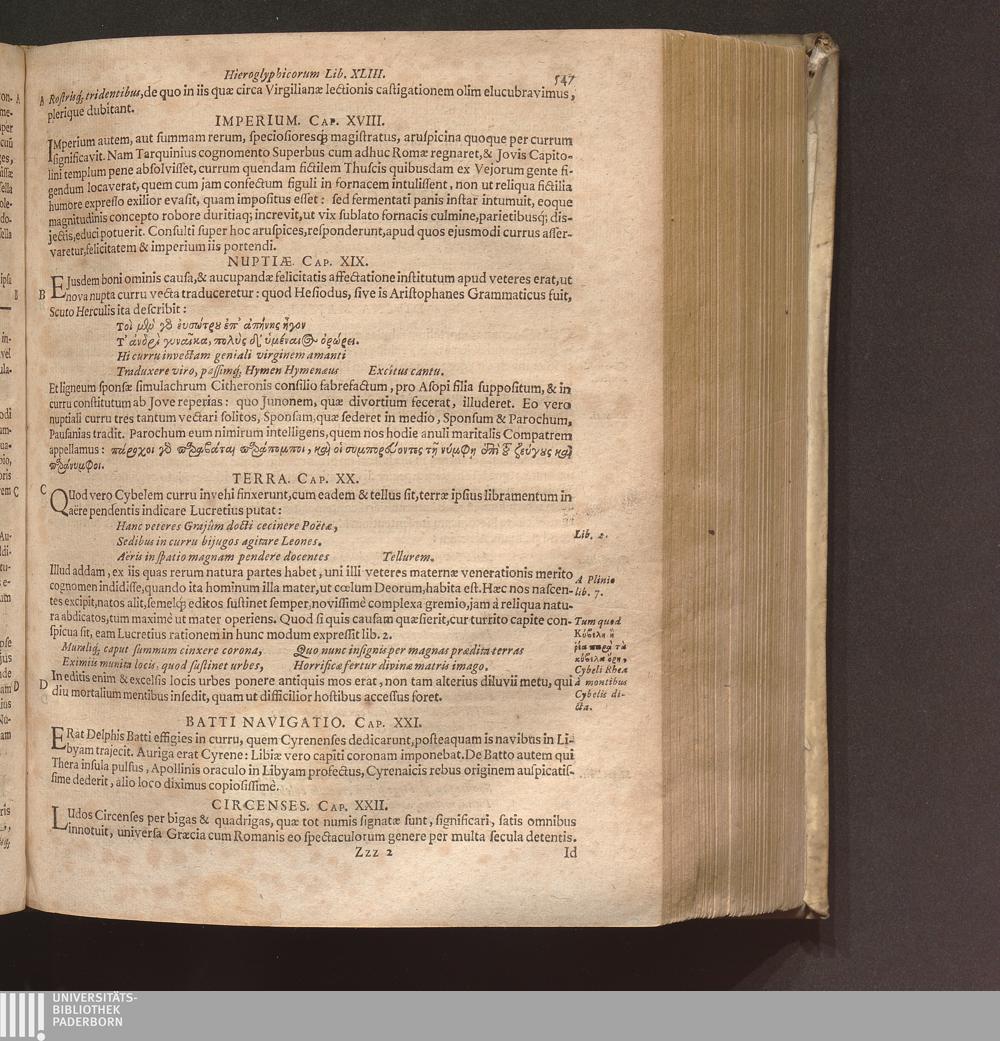 Hieroglyphicorum Lib. XLIII. 547
A Rostrisq; tridentibus, de quo in iis quæ circa Virgilianæ lectionis castigationem olim elucubravimus,
plerique dubitant.
IMPERIUM. CAP. XVIII.
IMperium autem, aut summam rerum, speciosioresq; magistratus, aruspicina quoque per currum
significavit. Nam Tarquinius cognomento Superbus cum adhuc Romæ regnaret, & Jovis Capito-
lini templum pene absolvisset, currum quendam fictilem Thuscis quibusdam ex Vejorum gente fi-
gendum locaverat, quem cum jam confectum figuli in fornacem intulissent, non ut reliqua fictilia
humore expresso exilior evasit, quam impositus esset: sed fermentati panis instar intumuit, eoque
magnitudinis concepto robore duritiaq; increvit, ut vix sublato fornacis culmine, parietibusq; dis-
jectis, educi potuerit. Consulti super hoc aruspices, responderunt, apud quos ejusmodi currus asser-
varetur, felicitatem & imperium iis portendi.
NUPTIÆ. CAP. XIX.
EJusdem boni ominis causa, & aucupandæ felicitatis affectatione institutum apud veteres erat, ut
B nova nupta curru vecta traduceretur: quod Hesiodus, sive is Aristophanes Grammaticus fuit,
Scuto Herculis ita describit:
Τοὶ μὲν γὸ ἐυσώτρου ἐπ' ἀπήνης ἦγον
Τ' ἀνδρὶ γυναῖκα, πολὺς δ' ὑμέναιος ὀρώρει.
Hi curru invectam geniali virginem amanti
Traduxere viro, passimq; Hymen Hymenæus Excitus cantu.
Et ligneum sponsæ simulachrum Citheronis consilio fabrefactum, pro Asopi filia suppositum, & in
curru constitutum ab Jove reperias: quo Junonem, quæ divortium fecerat, illuderet. Eo vero
nuptiali curru tres tantum vectari solitos, Sponsam, quæ sederet in medio, Sponsum & Parochum,
Pausanias tradit. Parochum eum nimirum intelligens, quem nos hodie anuli maritalis Compatrem
appellamus: πάροχοι γὸ παραβάται παράπομποι, καὶ οἱ συμπορεύοντες τῇ νύμφῃ ἐπὶ τοῦ ζεύγους καὶ
παράνυμφοι.
TERRA. CAP. XX.
C QUod vero Cybelem curru invehi finxerunt, cum eadem & tellus sit, terræ ipsius libramentum in
aëre pendentis indicare Lucretius putat:
Hanc veteres Grajûm docti cecinere Poëtæ,
Sedibus in curru bijugos agitare Leones. Lib. 2.
Aëris in spatio magnam pendere docentes Tellurem.
Illud addam, ex iis quas rerum natura partes habet, uni illi veteres maternæ venerationis merito
cognomen indidisse, quando ita hominum illa mater, ut cœlum Deorum, habita est. Hæc nos nascen-
tes excipit, natos alit, semelq; editos sustinet semper, novissimè complexa gremio, jam à reliqua natu-
ra abdicatos, tum maximè ut mater operiens. Quod si quis causam quæsierit, cur turrito capite con-
spicua sit, eam Lucretius rationem in hunc modum expressit lib. 2.
A Plinio
lib. 7.
Tum quod
Κύβελα ἡ
ῥέα παρὰ τὰ
κύβελα ὄρη,
Cybeli Rhea
à montibus
Cybelis di-
cta.
Muraliq; caput summum cinxere corona, Quo nunc insignis per magnas prædita terras
Eximiis munita locis, quod sustinet urbes, Horrificæ fertur divinæ matris imago.
In editis enim & excelsis locis urbes ponere antiquis mos erat, non tam alterius diluvii metu, qui
D diu mortalium mentibus insedit, quam ut difficilior hostibus accessus foret.
BATTI NAVIGATIO. CAP. XXI.
ERat Delphis Batti effigies in curru, quem Cyrenenses dedicarunt, posteaquam is navibus in Li-
byam trajecit. Auriga erat Cyrene: Libiæ vero capiti coronam imponebat. De Batto autem qui
Thera insula pulsus, Apollinis oraculo in Libyam profectus, Cyrenaicis rebus originem auspicatis-
sime dederit, alio loco diximus copiosissimè.
CIRCENSES. CAP. XXII.
LUdos Circenses per bigas & quadrigas, quæ tot numis signatæ sunt, significari, satis omnibus
innotuit, universa Græcia cum Romanis eo spectaculorum genere per multa secula detentis.
Zzz 2 Id
UNIVERSITÄTS-
BIBLIOTHEK
PADERBORN